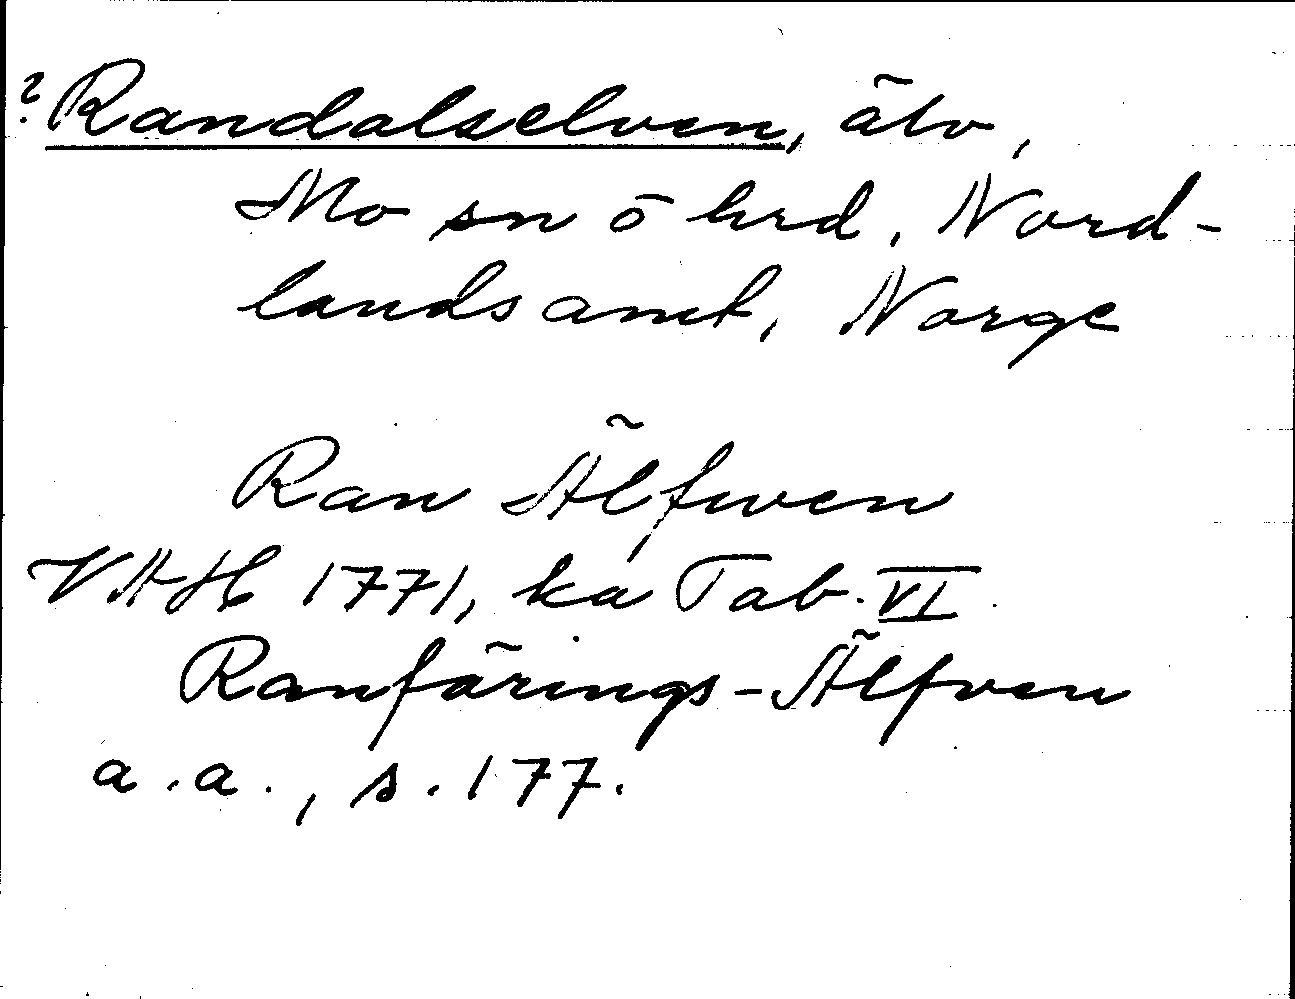 ?Randalselven, älv,
Mo sn o hrd, Nord-
landsamt, Norge
Ran Älfwen
VAH 1771, ka Tab. VI
Ranfärings-Älfven
a.a., s. 177.